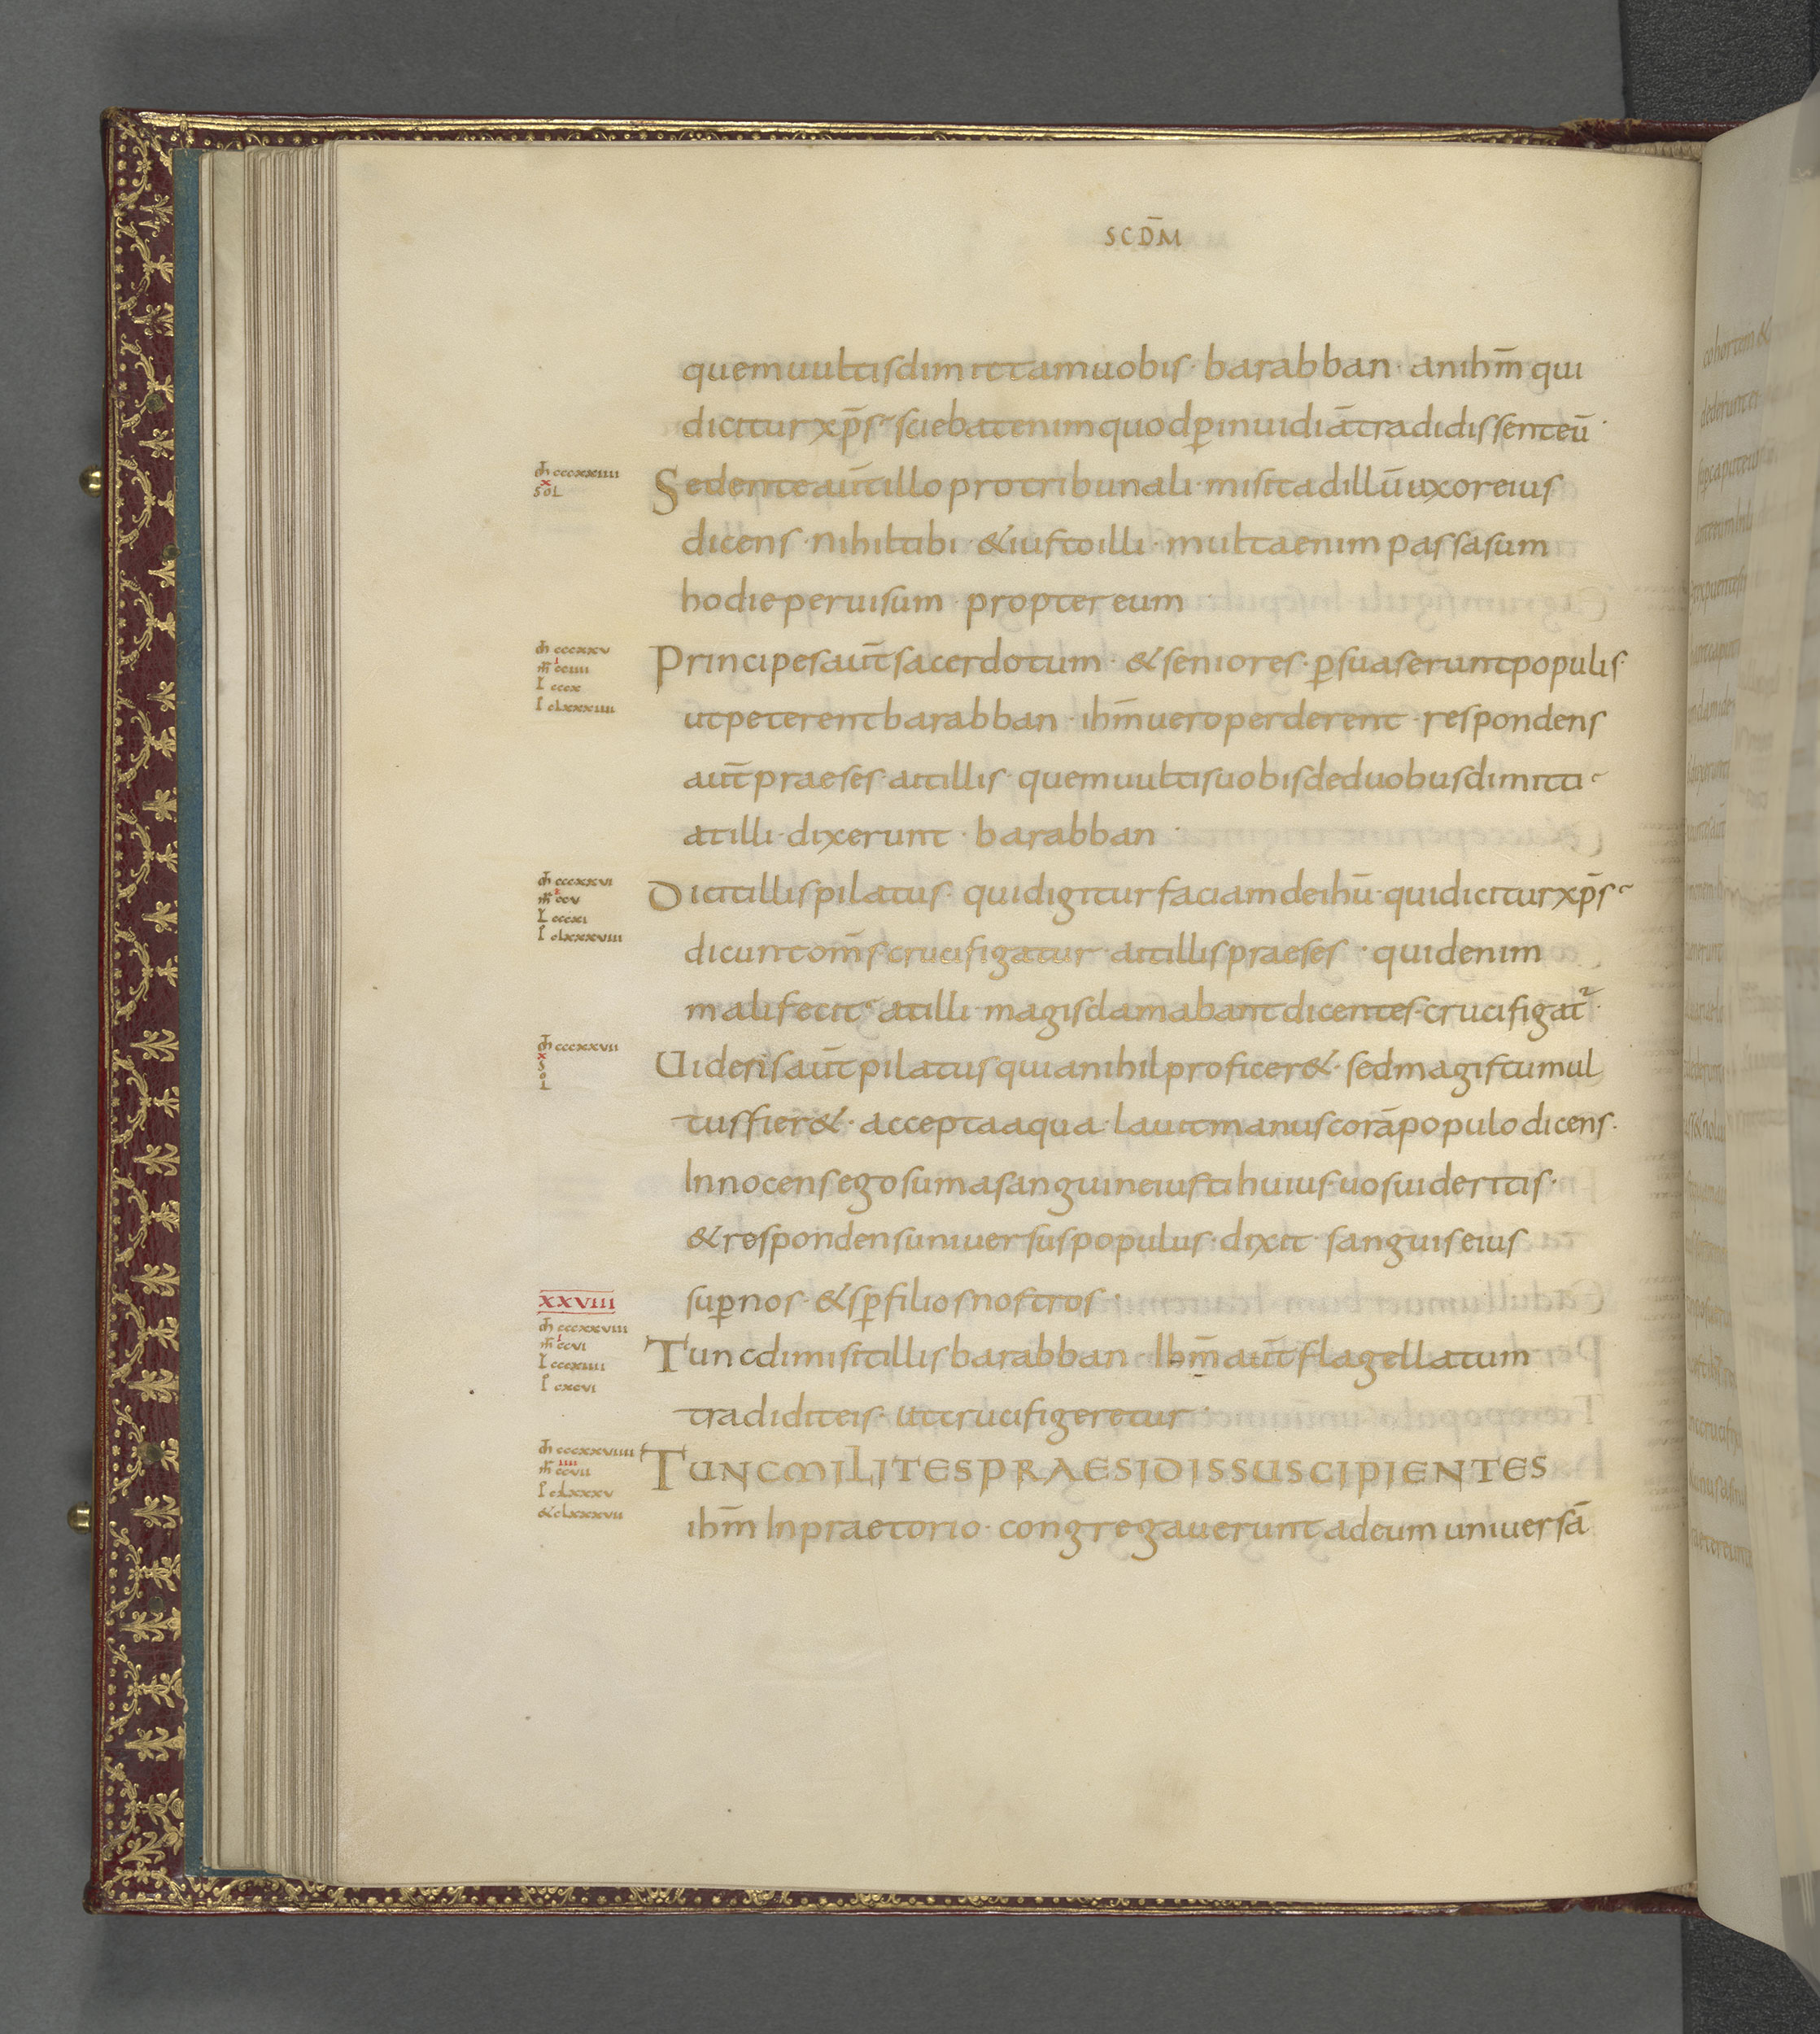 SCD̄M
quemuultisdimittamuobis· barabban· anihm̄ qui
dicitur xp̄s sciebatenimquodp̄inuidiātradidissenteū·
m̄ cccxxiiii
x
SOL
Sedenteaūtillo protribunali· misitadillūuxoreius
dicens· nihiltibi· &iustoilli· multaenim passasum
hodieperuisum propter eum·
m̄ cccxxv
i
m̄ cciiii
L cccx
I clxxxiiii
Principesaūtsacerdotum· &seniores· p̄suaseruntpopulis·
utpeterentbarabban· ihm̄ueroperderent· respondens
aūtpraeses· aitillis· quemuultisuobisdeduobusdimitti
atilli· dixerunt· barabban·
m̄ cccxxvi
m̄ ccv
L cccxi
I clxxxviii
Dicitillispilatus· quidigiturfaciamdeihū· quidiciturxp̄s
dicuntom̄s crucifigatur· aitillispraeses· quidenim
malifecit atilli· magisclamabantdicentes· crucifigat²·
m̄ cccxxvii
x
S
O
L
Uidensaūtpilatusquianihilproficer&· sedmagistumul
tusfier&· acceptaaqua· lauitmanuscorāpopulodicens·
Innocensegosumasanguineiustihuius· uosuideritis·
&respondensuniuersuspopulus· dixit· sanguiseius
sup̄nos· &sp̄filiosnostros·
XXVIII
m̄ cccxxviii
i
m̄ ccvi
L cccxiiii
I cxcvi
Tuncdimisitillisbarabban Ihm̄aūtflagellatum
tradiditeis· utcrucifigeretur·
m̄ cccxxviiii
iiii
m̄ ccvii
I clxxxv
& clxxxvii
TUNCMILITESPRAESIDISSUSCIPIENTES
ihm̄ Inpraetorio· congregaueruntadeum uniuersā